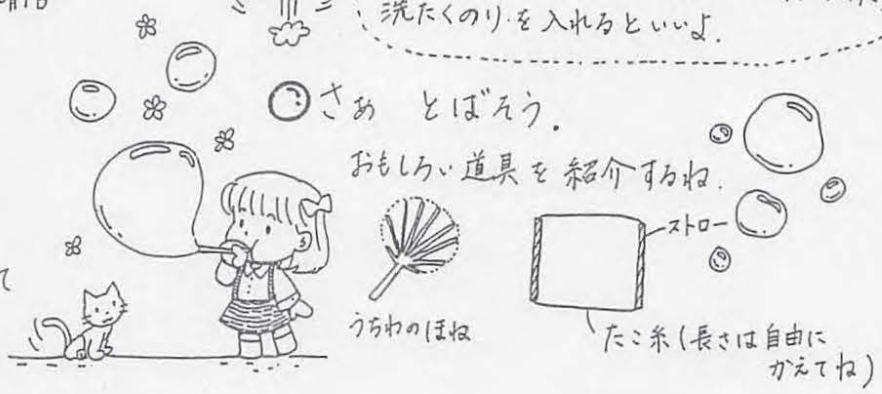 洗たくのりを入れるといいよ.
さぁ とばそう.
おもしろい道具を紹介するね.
ストロー
うちわのほね
たこ糸(長さは自由に
かえてね)
て